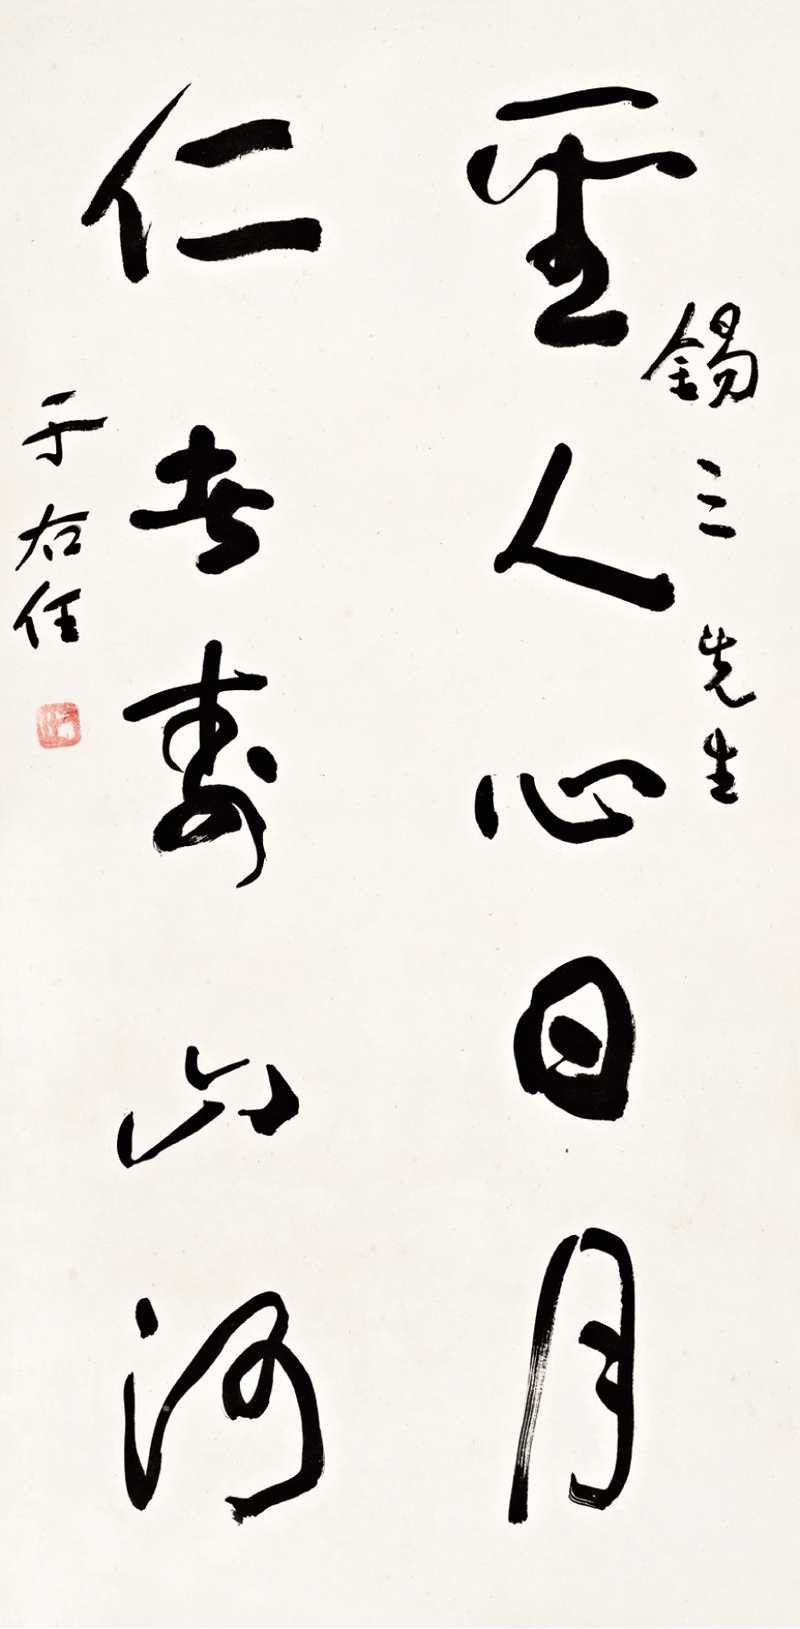 錫三先生
聖人心日月
仁者壽山河
于右任